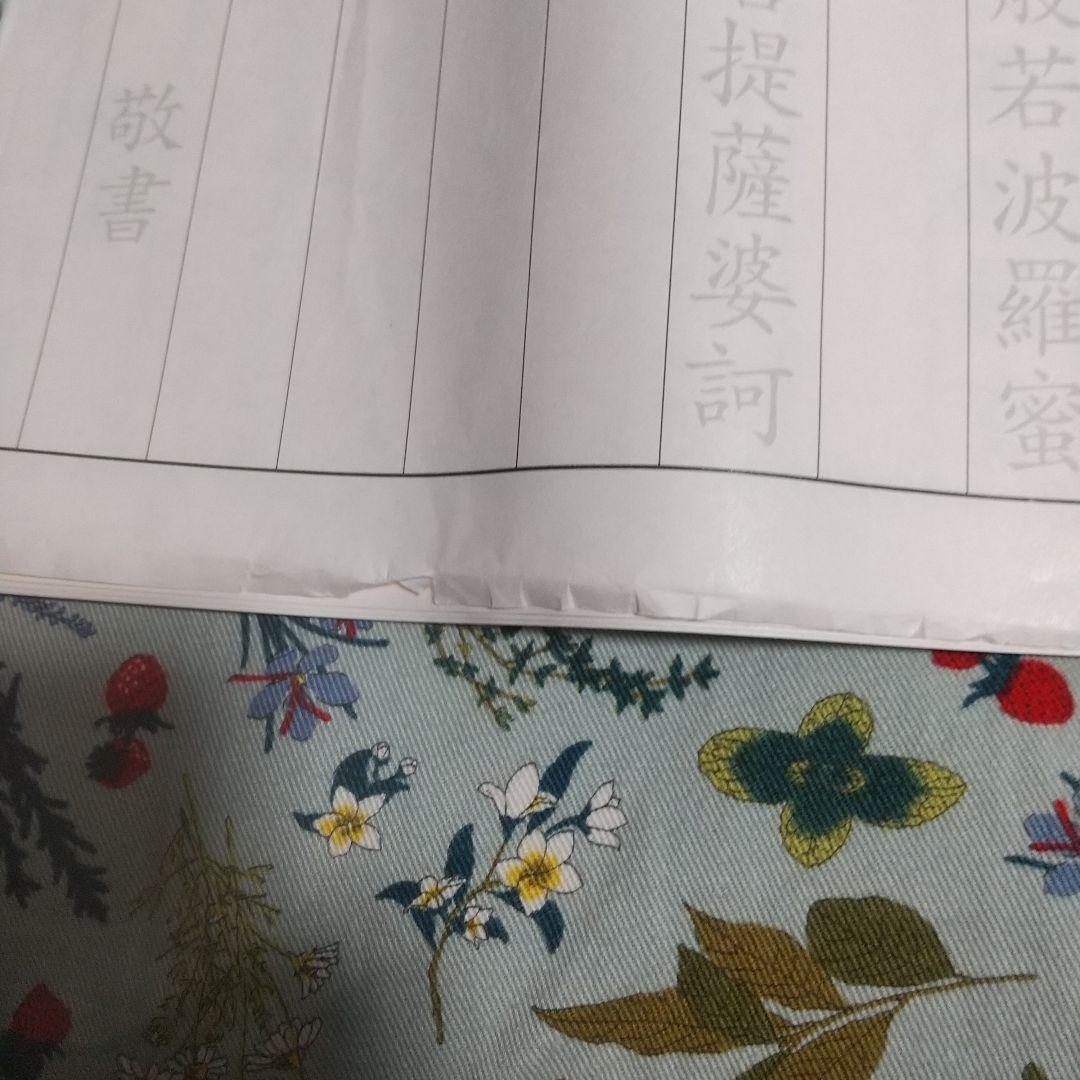 般若波羅蜜
提薩婆訶
敬書